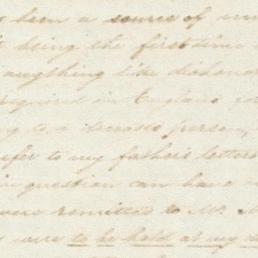 been a source of
being the first time
anything like dishonor
required in England for
to a deceased person,
refer to my father's letters
question can have
were remitted to Mr. M
were to be held at my